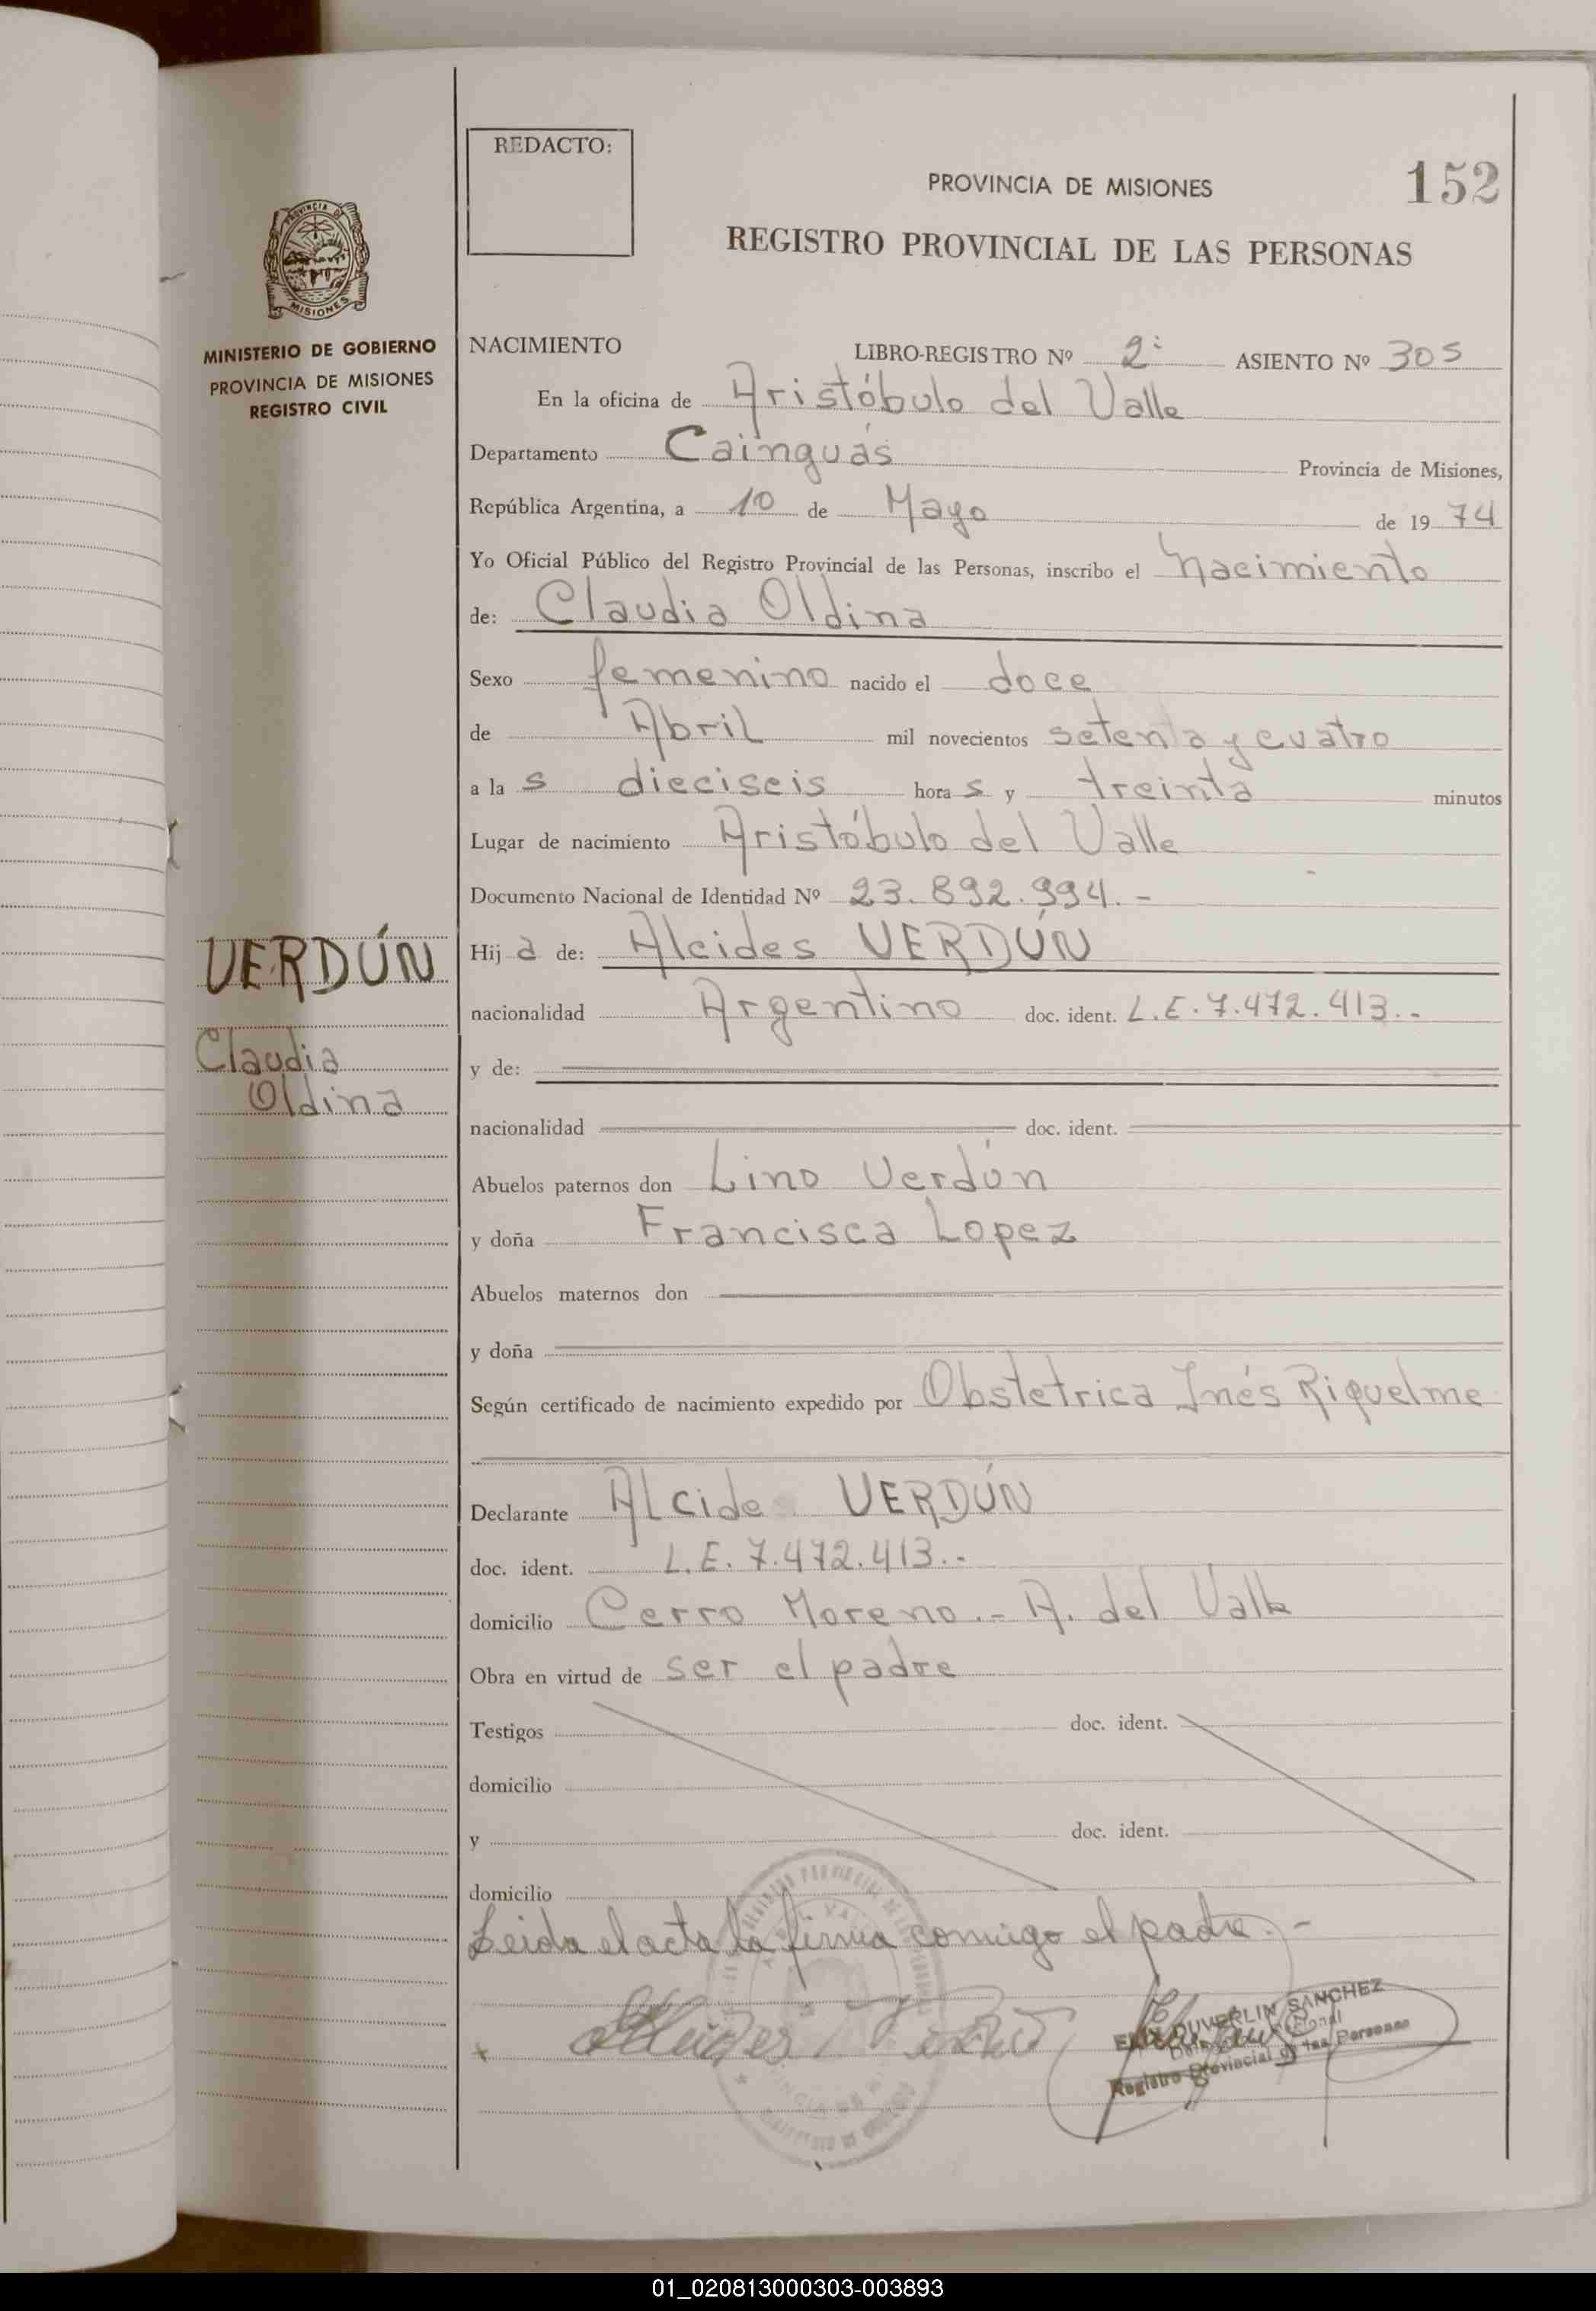 REDACTO:
PROVINCIA DE MISIONES
152
REGISTRO PROVINCIAL DE LAS PERSONAS
PROVINCIA DE
MISIONES
MINISTERIO DE GOBIERNO
PROVINCIA DE MISIONES
REGISTRO CIVIL
NACIMIENTO LIBRO-REGISTRO Nº 2º ASIENTO Nº 305
En la oficina de Aristóbulo del Valle
Departamento Cainguás Provincia de Misiones,
República Argentina, a 10 de Mayo de 1974
Yo Oficial Público del Registro Provincial de las Personas, inscribo el Nacimiento
de: Claudia Oldina
Sexo femenino nacido el doce
de Abril mil novecientos setenta y cuatro
a la s dieciseis hora s y treinta minutos
Lugar de nacimiento Aristóbulo del Valle
Documento Nacional de Identidad Nº 23.892.994.-
VERDÚN
Claudia
Oldina
Hij a de: Alcides VERDÚN
nacionalidad Argentino doc. ident. L.E. 7.472.413.-
y de:
nacionalidad doc. ident.
Abuelos paternos don Lino Verdún
y doña Francisca Lopez
Abuelos maternos don
y doña
Según certificado de nacimiento expedido por Obstetrica Inés Riquelme
Declarante Alcide VERDÚN
doc. ident. L.E. 7.472.413.-
domicilio Cerro Moreno.- A. del Valle
Obra en virtud de ser el padre
Testigos doc. ident.
domicilio
y doc. ident.
domicilio
Leida el acta la firma conmigo el padre.-
DUVERLIN SANCHEZ
Registro Provincial de las Personas
01_020813000303-003893